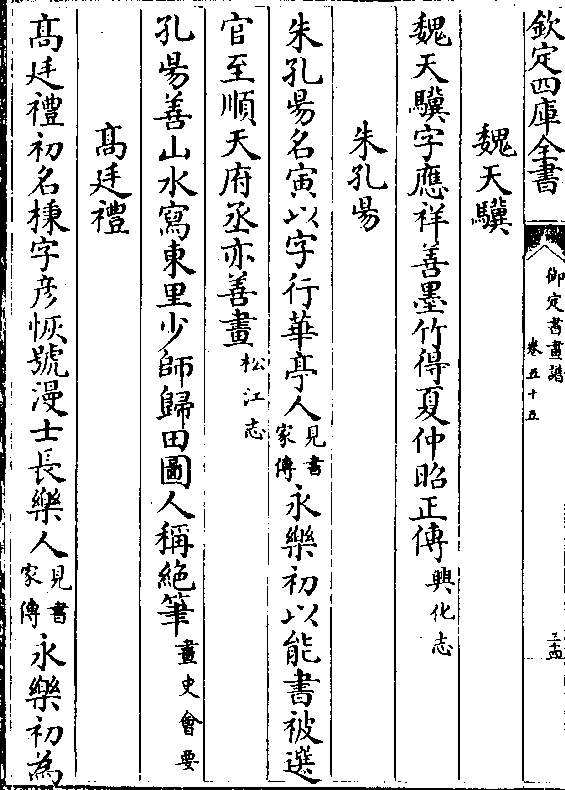 欽定四庫全書
御定書畫譜
卷五十五
魏天驥
魏天驥字應祥善墨竹得夏仲昭正傳興化志
朱孔昜
朱孔昜名寅以字行華亭人見書家傳永樂初以能書被選
官至順天府丞亦善畫松江志
孔昜善山水寫東里少師歸田圖人稱絶筆畫史會要
髙廷禮
髙廷禮初名棅字彥恢號漫士長樂人見書家傳永樂初為